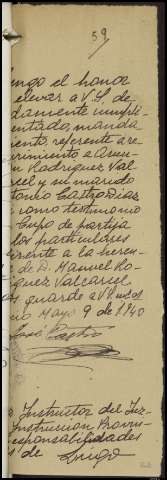 59
engo el honor
elevar a V.S. de
damente cumpli-
entado, manda
ento, referente a re-
rimiento a Carmen
n Rodriguez Val
cel y su marido
tonio Castro Diaz
como testimonio
Cupo de partija
los particulares
erente a la heren-
de D. Manuel Ro-
iguez Valcarcel
os guarde a V.S.
Mayo 9 de 1940
José Castro
Instructor del Juz-
Instrucion Provin-
esponsabilidades
s de Lugo